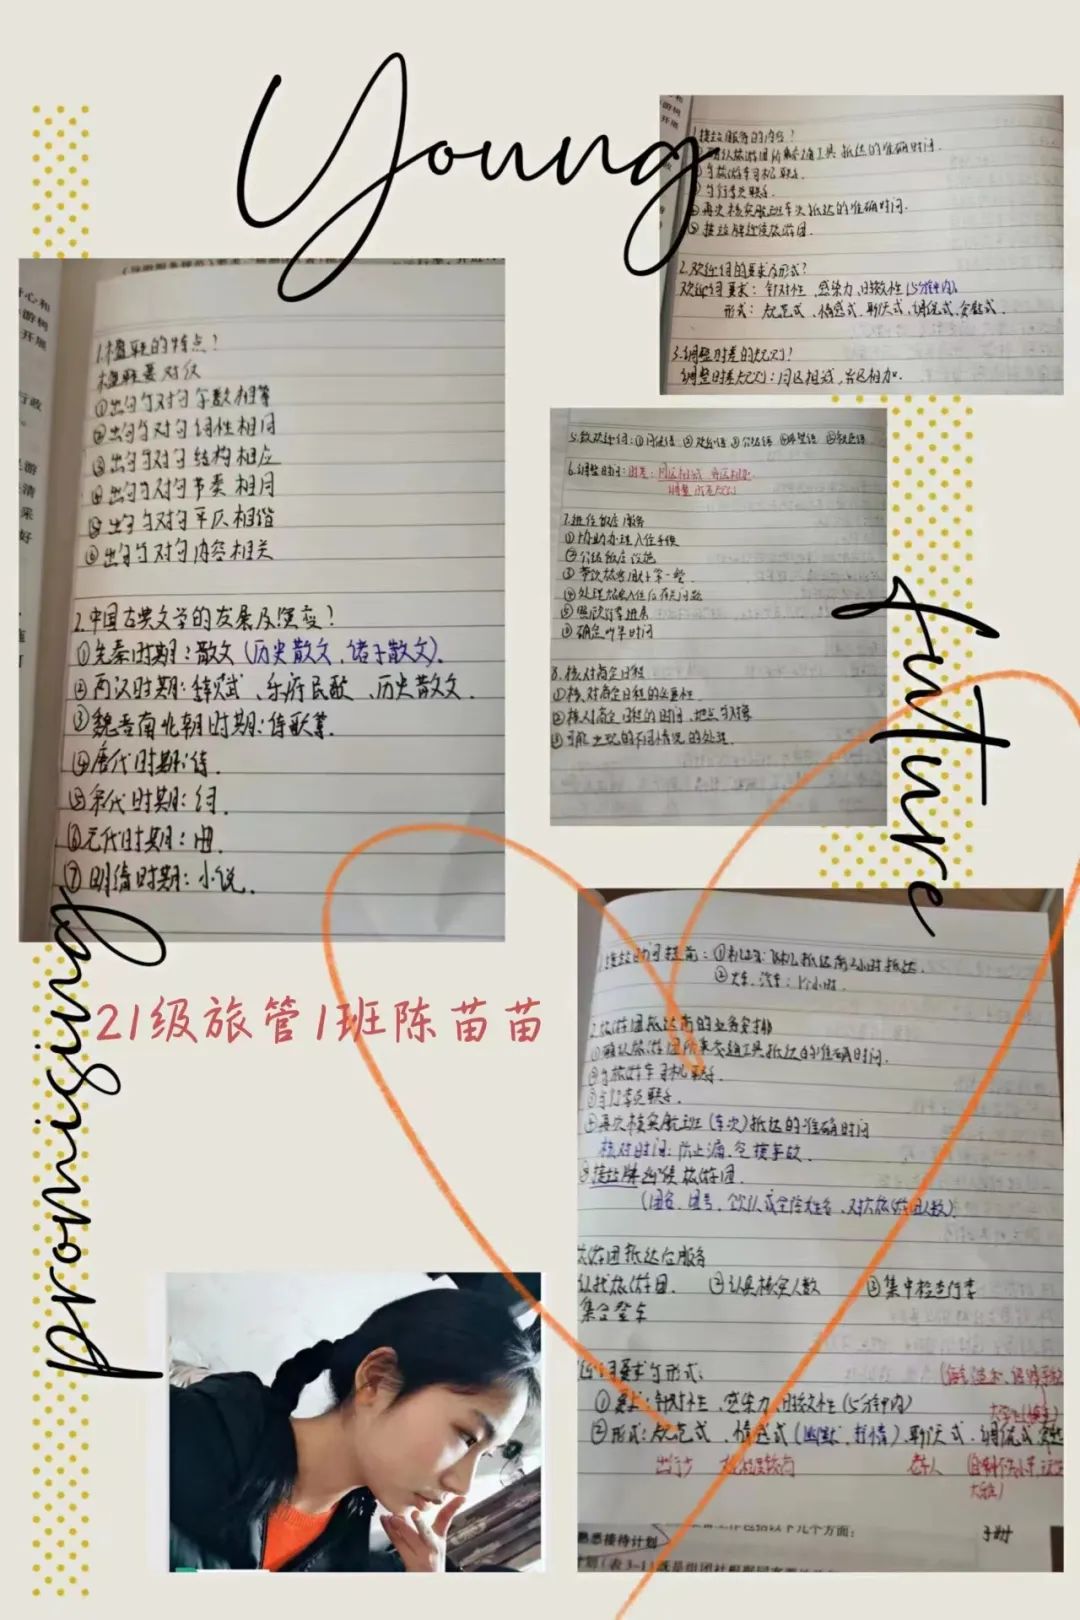 Young
1.楹联的特点？
楹联要对仗
①出句与对句字数相等
②出句与对句词性相同
③出句与对句结构相应
④出句与对句节奏相同
⑤出句与对句平仄相谐
⑥出句与对句内容相关
2.中国古典文学的发展及演变？
①先秦时期：散文（历史散文，诸子散文）.
②两汉时期：辞赋、乐府民歌、历史散文.
③魏晋南北朝时期：诗歌等.
④唐代时期：诗.
⑤宋代时期：词.
⑥元代时期：曲.
⑦明清时期：小说.
1.接站服务的内容？
①确认旅游团所乘交通工具抵达的准确时间.
②与旅游车司机联系.
③与行李员联系.
④再次核实航班车次抵达的准确时间.
⑤接站牌迎候旅游团.
2.欢迎词的要求及形式？
欢迎词要求：针对性、感染力、时效性（5分钟内）
形式：规范式、情感式、聊天式、调侃式、安慰式.
3.调整时差的规则？
调整时差规则：同区相减，异区相加.
5.致欢迎词：①问候语 ②欢迎语 ③介绍语 ④希望语 ⑤祝愿语
6.调整时间：时差：同区相减 异区相加.
调整时差规则
7.进住饭店服务
①协助办理入住手续
②介绍饭店设施
③带领旅客用好第一餐.
④处理旅客入住后有关问题
⑤照顾行李进房
⑥确定叫早时间
8.核对商定日程
①核对商定日程的必要性.
②核对商定日程的时间、地点与对象
③可能出现的不同情况的处理.
future
promising
21级旅管1班陈苗苗
接站时间提前：①机场：飞机抵达前2小时抵达.
②火车、汽车：1个小时.
2.旅游团抵达前的业务安排
①确认旅游团所乘交通工具抵达的准确时间.
②与旅游车司机联系.
③与行李员联系.
④再次核实航班（车次）抵达的准确时间
核对时间：防止漏、空接事故.
⑤接站牌迎候旅游团.
（团名、团号、领队或全陪姓名、对旅游团人数）
旅游团抵达后服务
认找旅游团. ②认真核实人数 ③集中检查行李
集合登车
迎词要求与形式：
①要求：针对性、感染力、时效性（5分钟内）
②形式：规范式、情感式（幽默、抒情）、聊天式、调侃式
老人
熟悉接待计划
工作包括以下几个方面：